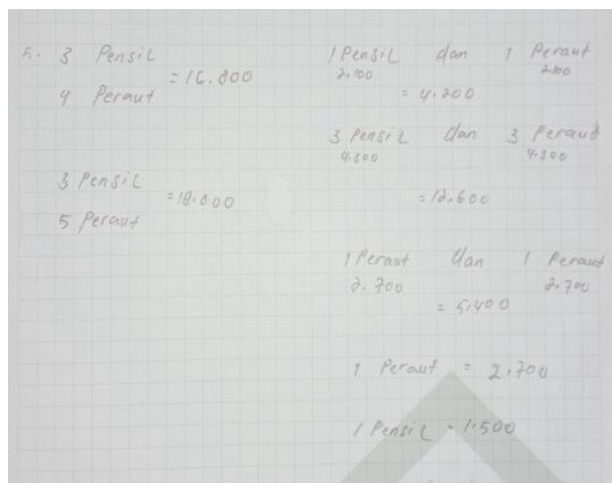 5. 3 Pensil
4 Peraut
= 16.800
3 Pensil
5 Peraut
= 18.800
1 Pensil dan 1 Peraut
2.100 2.100
= 4.200
3 Pensil dan 3 Peraut
= 12.600
1 Peraut dan 1 Peraut
2.700 2.700
= 5.400
1 Peraut = 2.700
1 Pensil = 1.500